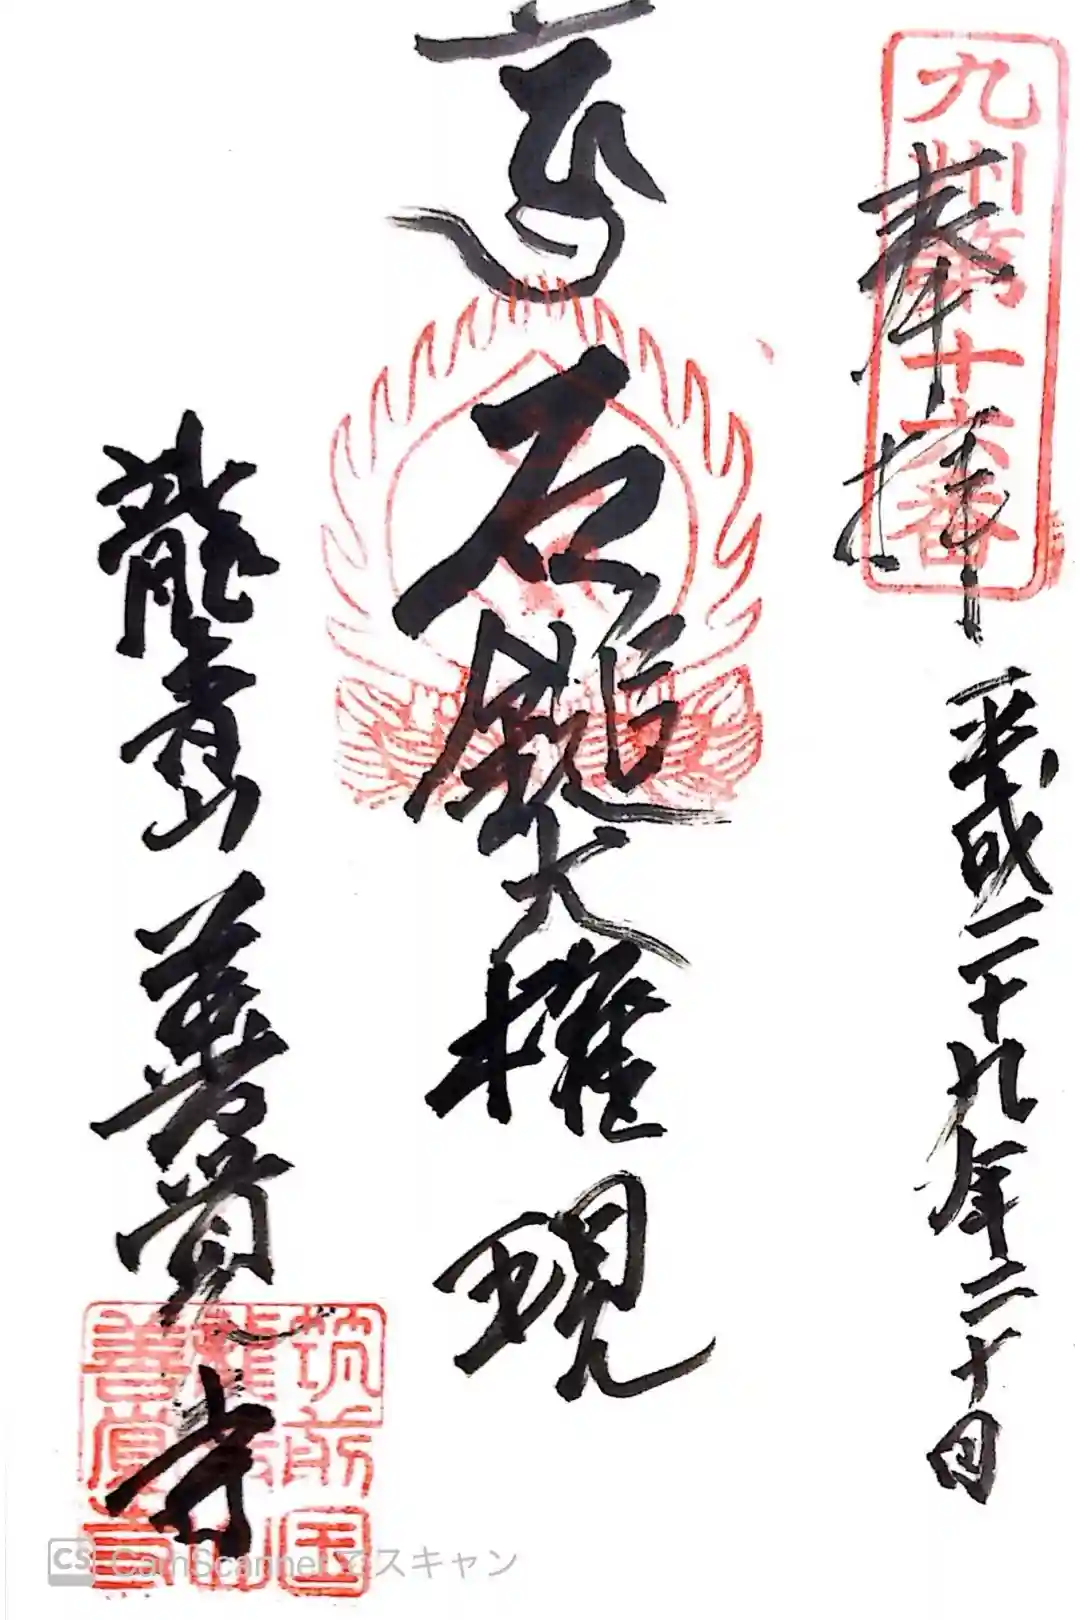 九州第十六番
奉拝 平成二十九年二十日
石鎚大権現
龍青山 善覚寺
筑前国
龍青山
善覚寺
CS CamScanner でスキャン